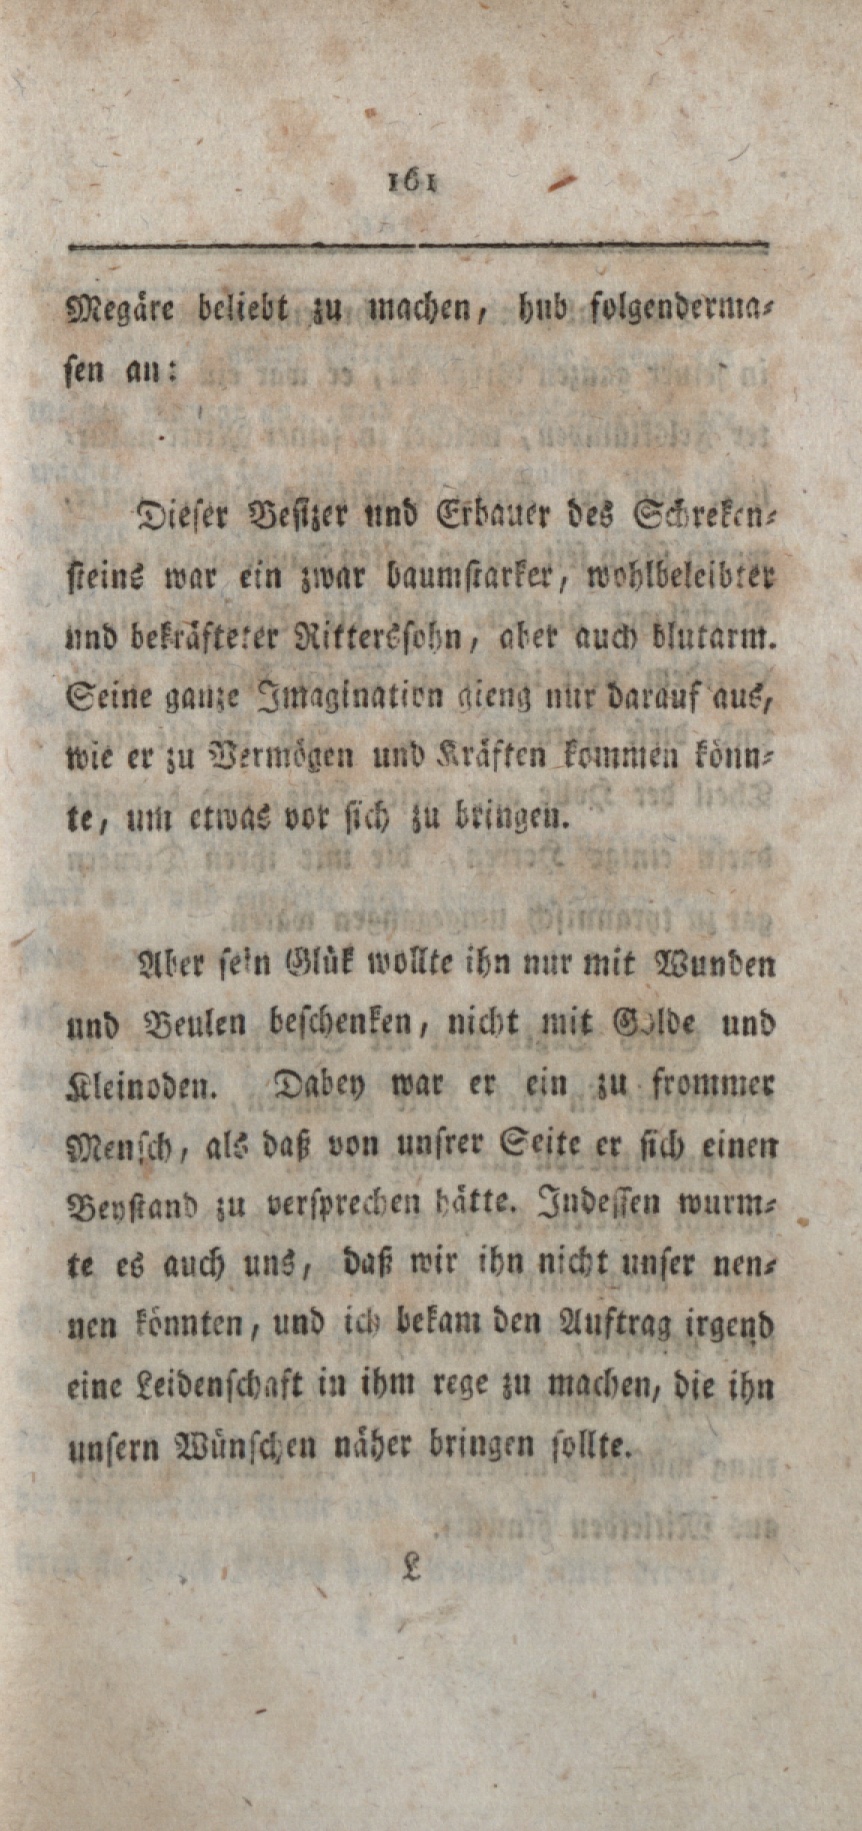 161
Megäre beliebt zu machen, hub folgenderma-
sen an:
Dieser Besizer und Erbauer des Schreken-
steins war ein zwar baumstarker, wohlbeleibter
und bekräfteter Ritterssohn, aber auch blutarm.
Seine ganze Imagination gieng nur darauf aus,
wie er zu Vermögen und Kräften kommen könn-
te, um etwas vor sich zu bringen.
Aber sein Glük wollte ihn nur mit Wunden
und Beulen beschenken, nicht mit Golde und
Kleinoden. Dabey war er ein zu frommer
Mensch, als daß von unsrer Seite er sich einen
Beystand zu versprechen hätte. Indessen wurm-
te es auch uns, daß wir ihn nicht unser nen-
nen könnten, und ich bekam den Auftrag irgend
eine Leidenschaft in ihm rege zu machen, die ihn
unsern Wünschen näher bringen sollte.
L